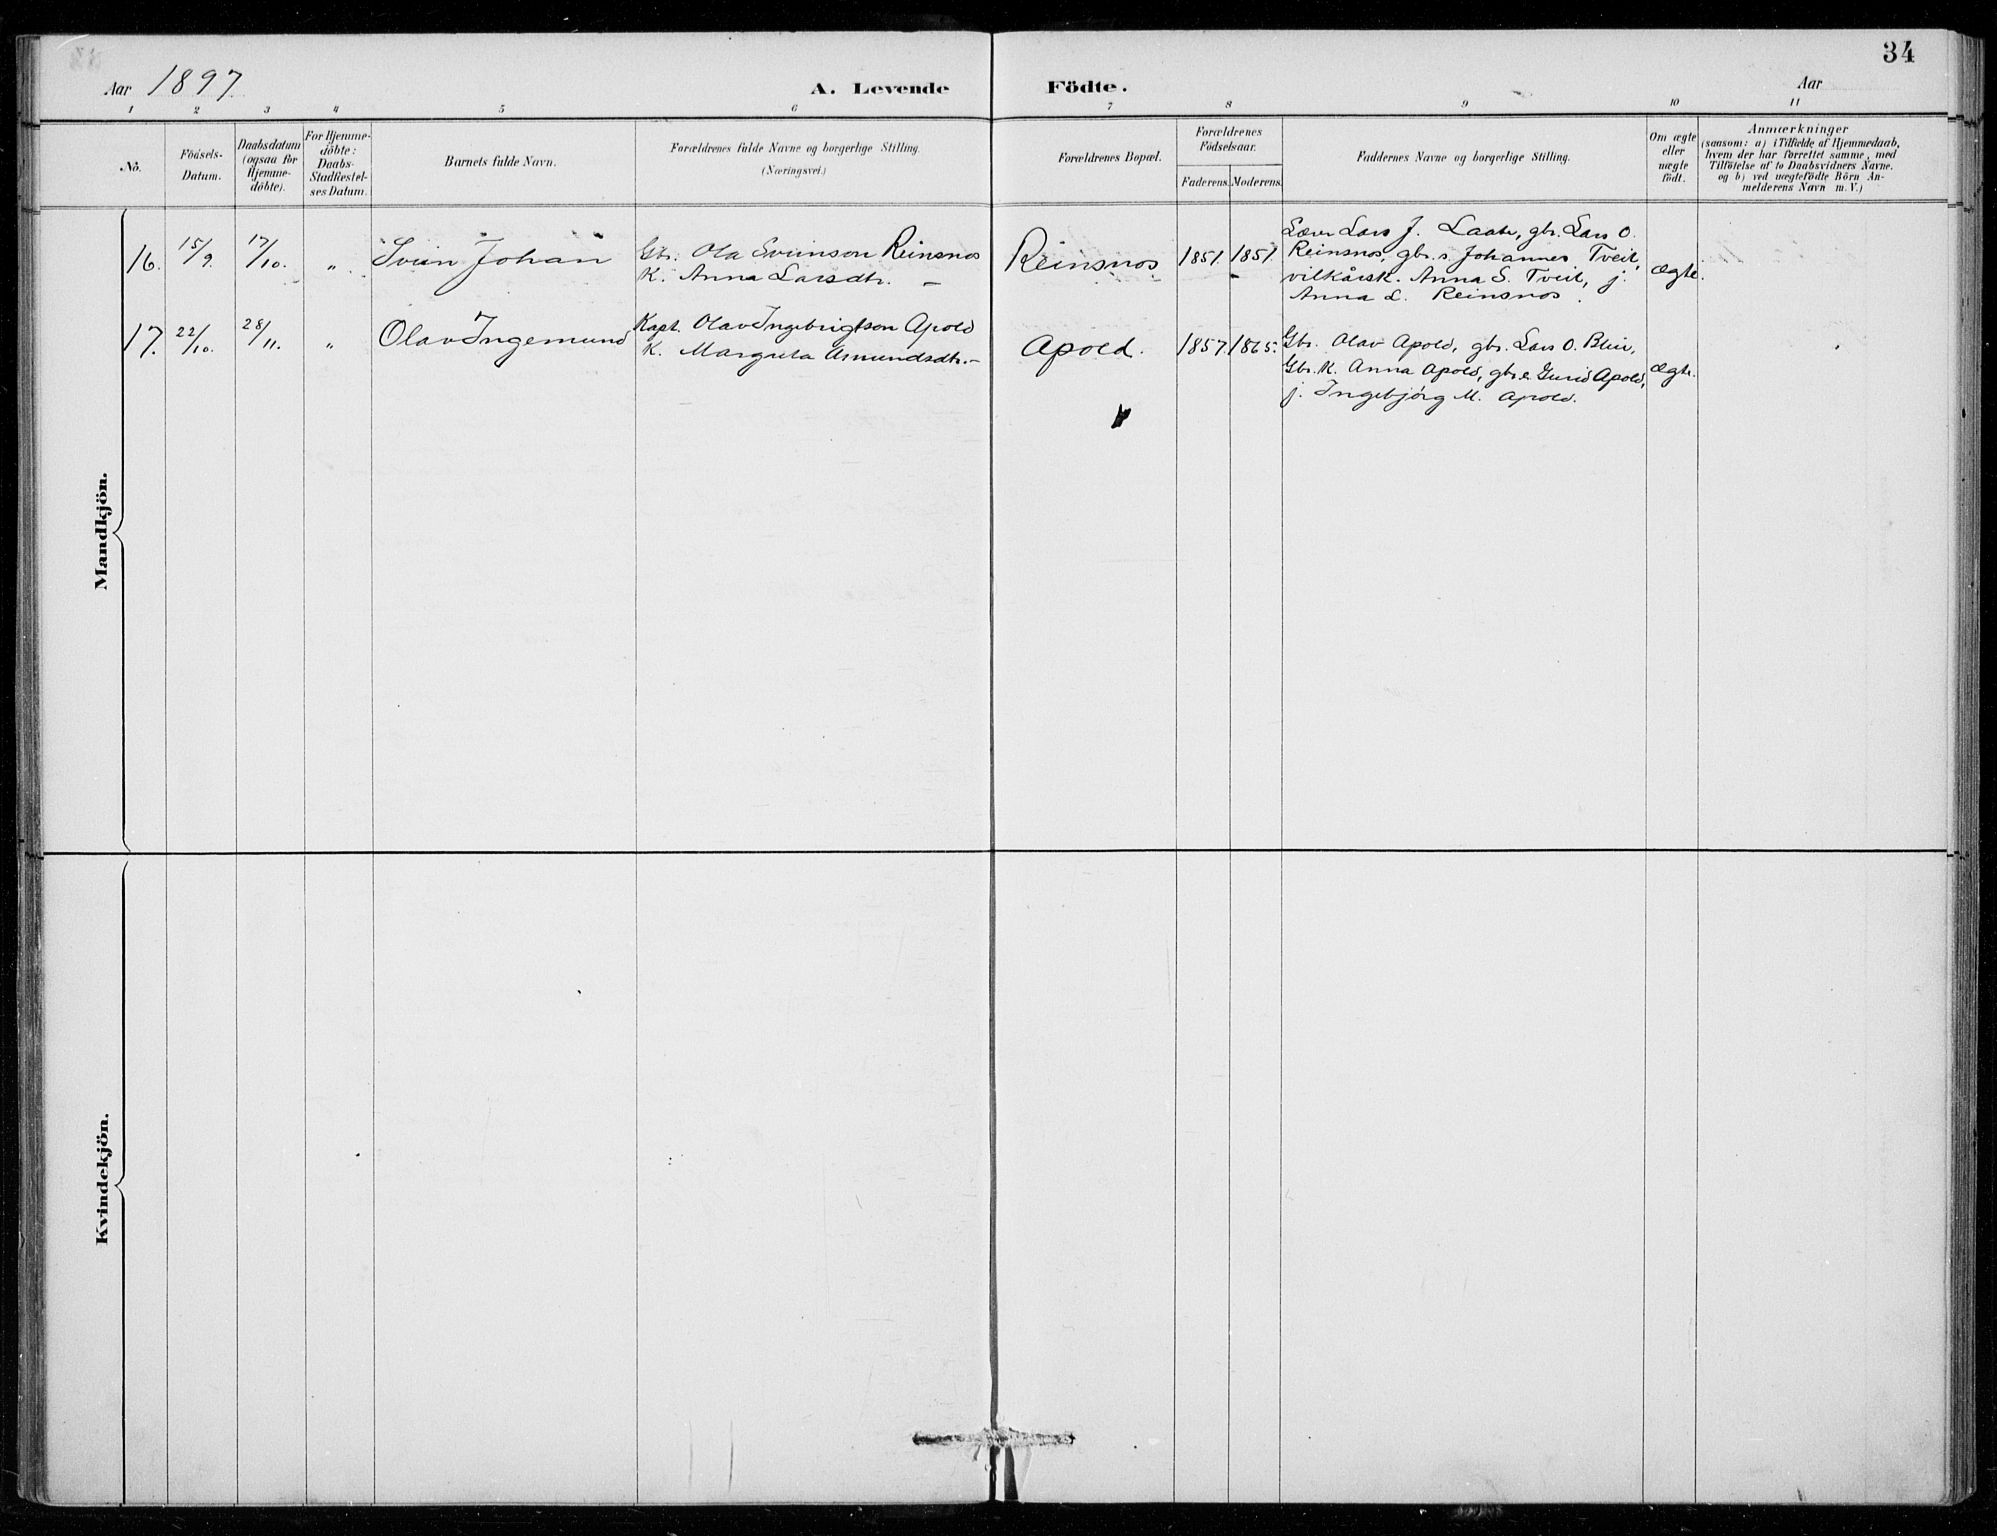 34
Aar 1897. A. Levende Födte. Aar
1 2 3 4 5 6 7 8 9 10 11
No.
Födsels-
Datum.
Daabsdatum
(ogsaa for
Hjemme-
döbte).
For Hjemme-
döbte:
Daabs-
Stadfæstel-
ses Datum.
Barnets fulde Navn.
Forældrenes fulde Navne og borgerlige Stilling.
(Næringsvei.)
Forældrenes Bopæl.
Forældrenes
Födselsaar.
Faderens. Moderens.
Faddernes Navne og borgerlige Stilling.
Om ægte
eller
uægte
födt.
Anmærkninger
(saasom: a) i Tilfælde af Hjemmedaab,
hvem der har forrettet samme, med
Tilföielse af to Daabsvidners Navne.
og b) ved uægtefödte Börn An-
melderens Navn m. V.)
Mandkjön.
16. 15/9. 17/10. " Svein Johan
Gbr. Ola Sveinson Reinsnos
K. Anna Larsdtr. –
Reinsnos 1851 1851
Lars J. Laate, gbr. Lars O.
Reinsnos, gbr. s. Johannes Tveit,
vilkårsk. Anna S. Tveit, j.
Anna L. Reinsnos.
Ægte.
17. 22/10. 28/11. " Olav Ingemund
Kapt. Olav Ingebrigtson Apold
K. Margreta Asmundsdtr. –
Apold. 1857. 1865.
Gbr. Olav Apold, gbr. Lars O. Bleie,
Gbr. K. Anna Apold, gbr. e. Gurid Apold,
j. Ingebjørg M. Apold.
Ægte.
Kvindekjön.